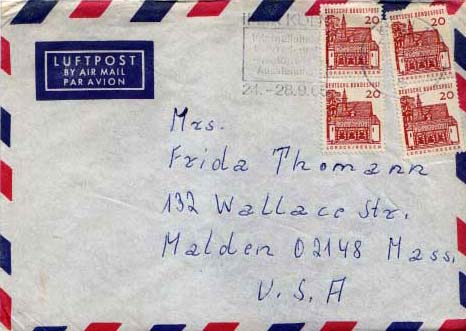 LUFTPOST
BY AIR MAIL
PAR AVION
24.-28.9.
DEUTSCHE BUNDESPOST
20
LORSCH/HESSEN
DEUTSCHE BUNDESPOST
20
DEUTSCHE BUNDESPOST
20
LORSCH/HESSEN
DEUTSCHE BUNDESPOST
20
LORSCH/HESSEN
Mrs.
Frida Thomann
132 Wallace Str.
Malden 02148 Mass.
U.S.A